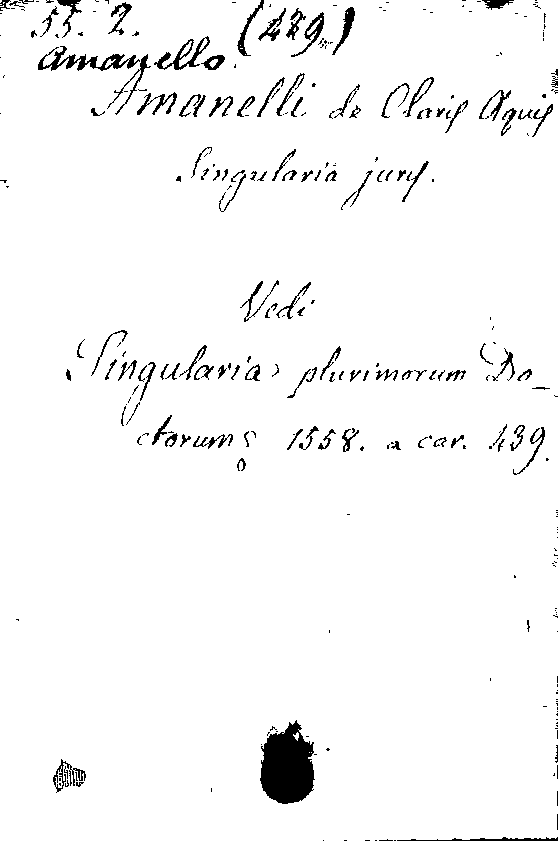 55. 2. (439)
Amanello.
Amanelli de Claris Aquis
Singularia juris.
Vedi
Singularia plurimorum Do_
ctorum 1558. a car. 439.